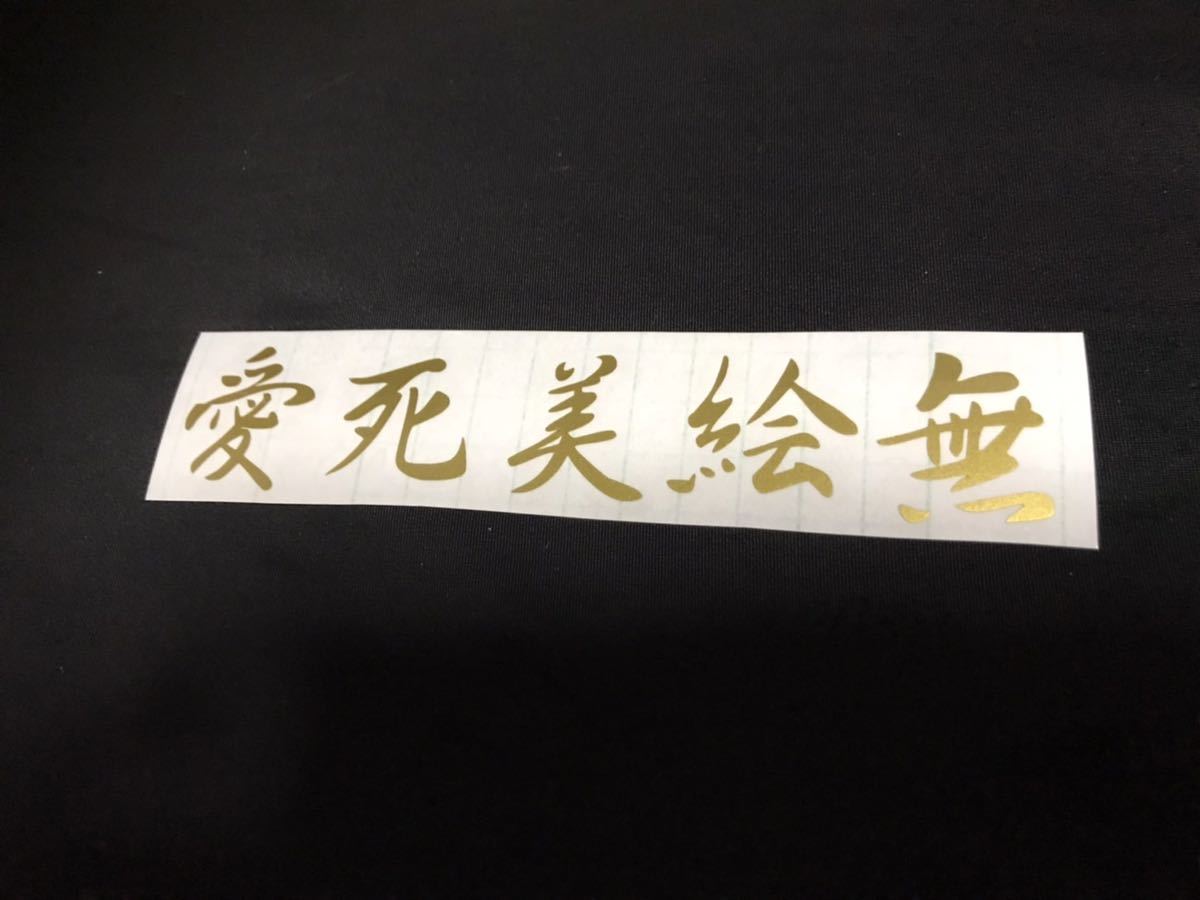 愛死美絵無